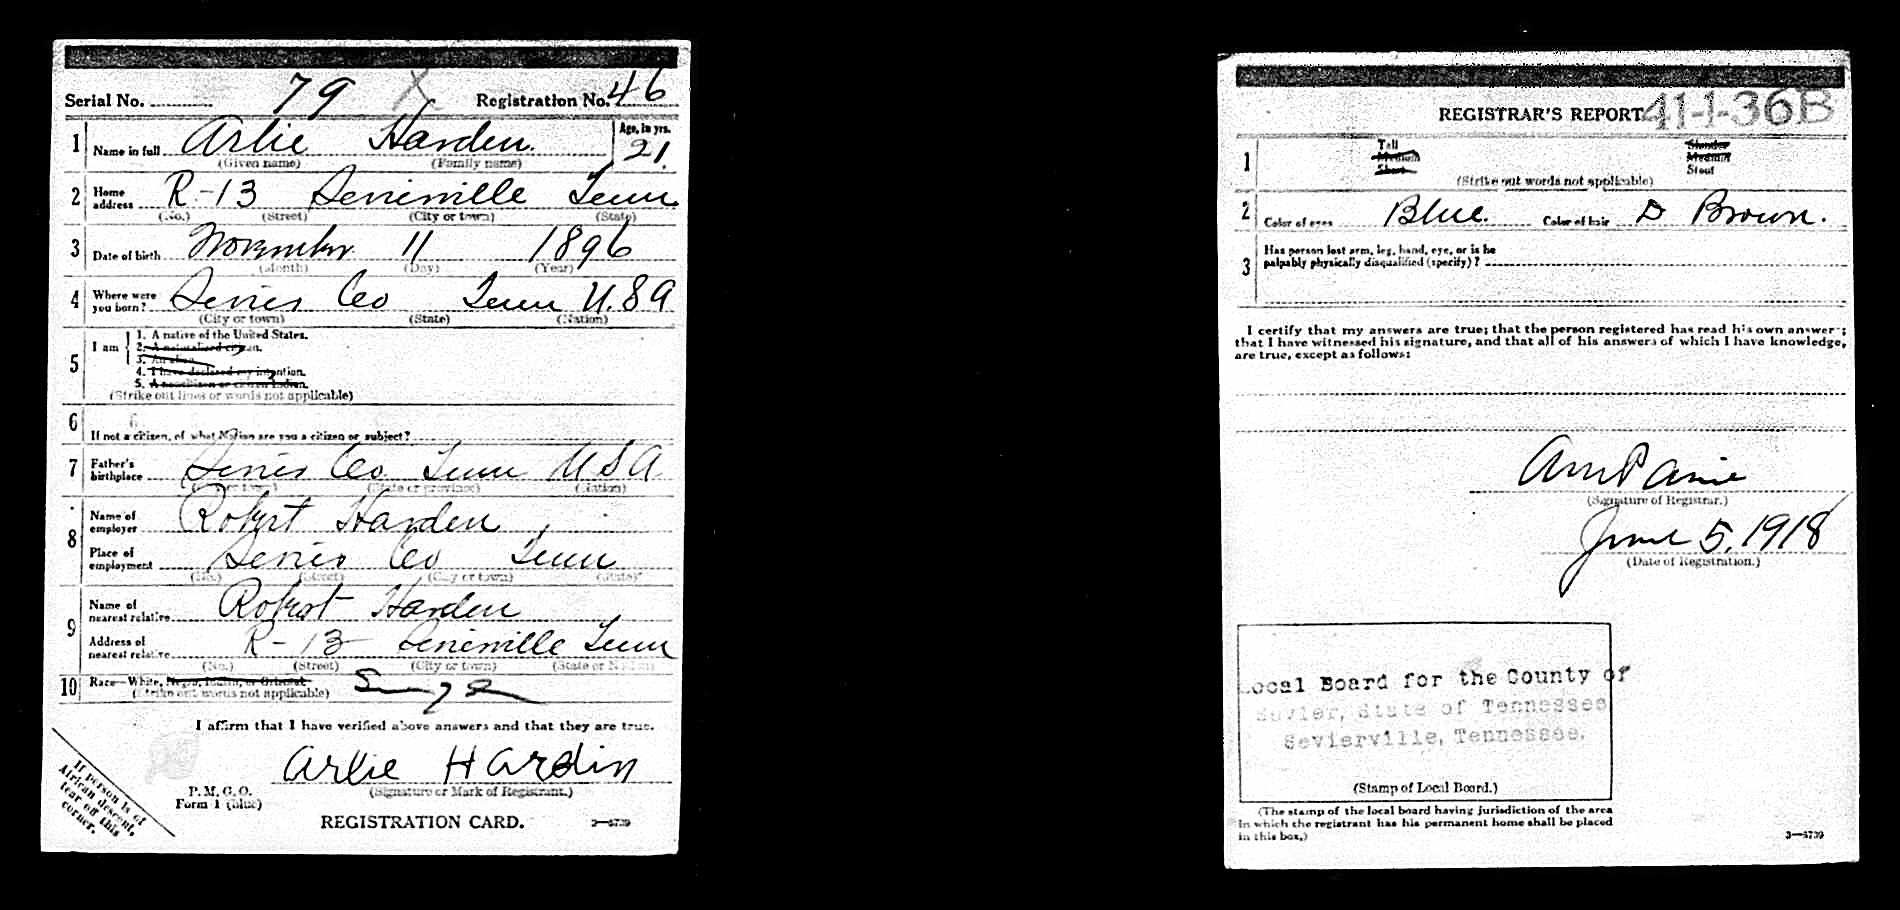 Serial No. 79 X Registration No. 46
1 Name in full Arlie Harden. Age, in yrs. 21.
(Given name) (Family name)
2 Home address R-13 Sevierville Tenn
(No.) (Street) (City or town) (State)
3 Date of birth November 11 1896
(Month) (Day) (Year)
4 Where were you born? Sevier Co Tenn U.S A
(City or town) (State) (Nation)
5 I am
1. A native of the United States.
2. A naturalized citizen.
3. An alien.
4. I have declared my intention.
5. A noncitizen or citizen Indian.
(Strike out lines or words not applicable)
6 If not a citizen, of what Nation are you a citizen or subject?
7 Father's birthplace Sevier Co Tenn U S A
(City or town) (State or province) (Nation)
8 Name of employer Robert Harden
Place of employment Sevier Co Tenn
(No.) (Street) (City or town) (State)
9 Name of nearest relative Robert Harden
Address of nearest relative R-13 Sevierville Tenn
(No.) (Street) (City or town) (State or Nation)
10 Race—White, Negro, Indian, or Oriental
(Strike out words not applicable)
I affirm that I have verified above answers and that they are true.
Arlie Hardin
(Signature or Mark of Registrant.)
P. M. G. O.
Form 1 (blue)
REGISTRATION CARD. 3—5739
If person is
African descent,
tear off this
corner.
REGISTRAR'S REPORT 41-1-36B
1 Tall Slender
Medium Medium
Short Stout
(Strike out words not applicable)
2 Color of eyes Blue. Color of hair D Brown.
3 Has person lost arm, leg, hand, eye, or is he
palpably physically disqualified (specify)?
I certify that my answers are true; that the person registered has read his own answers;
that I have witnessed his signature, and that all of his answers of which I have knowledge,
are true, except as follows:
(Signature of Registrar.)
June 5, 1918
(Date of Registration.)
Local Board for the County of
Sevier, State of Tennessee
Sevierville, Tennessee.
(Stamp of Local Board.)
(The stamp of the local board having jurisdiction of the area
in which the registrant has his permanent home shall be placed
in this box.)
3—5739